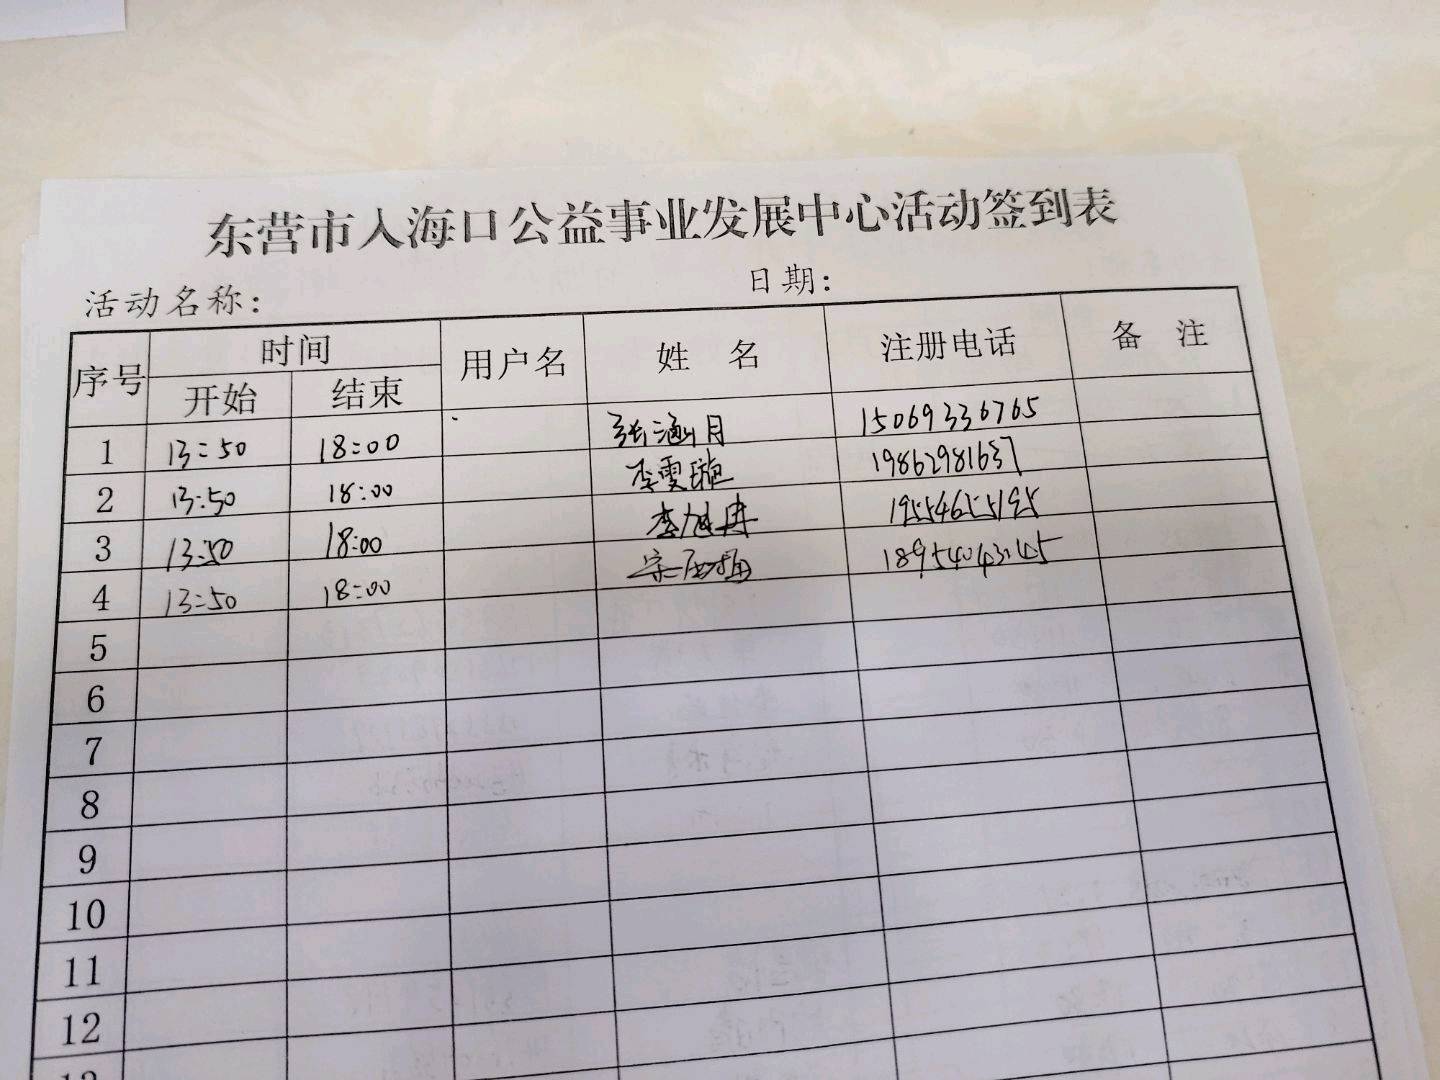 东营市入海口公益事业发展中心活动签到表
活动名称: 日期:
序号 时间 用户名 姓 名 注册电话 备 注
开始 结束
1 13:50 18:00 张涵月 15069336765
2 13:50 18:00 李雯璇 19862981637
3 13:50 18:00 李旭冉 19554655195
4 13:50 18:00 18954043145
5
6
7
8
9
10
11
12
13